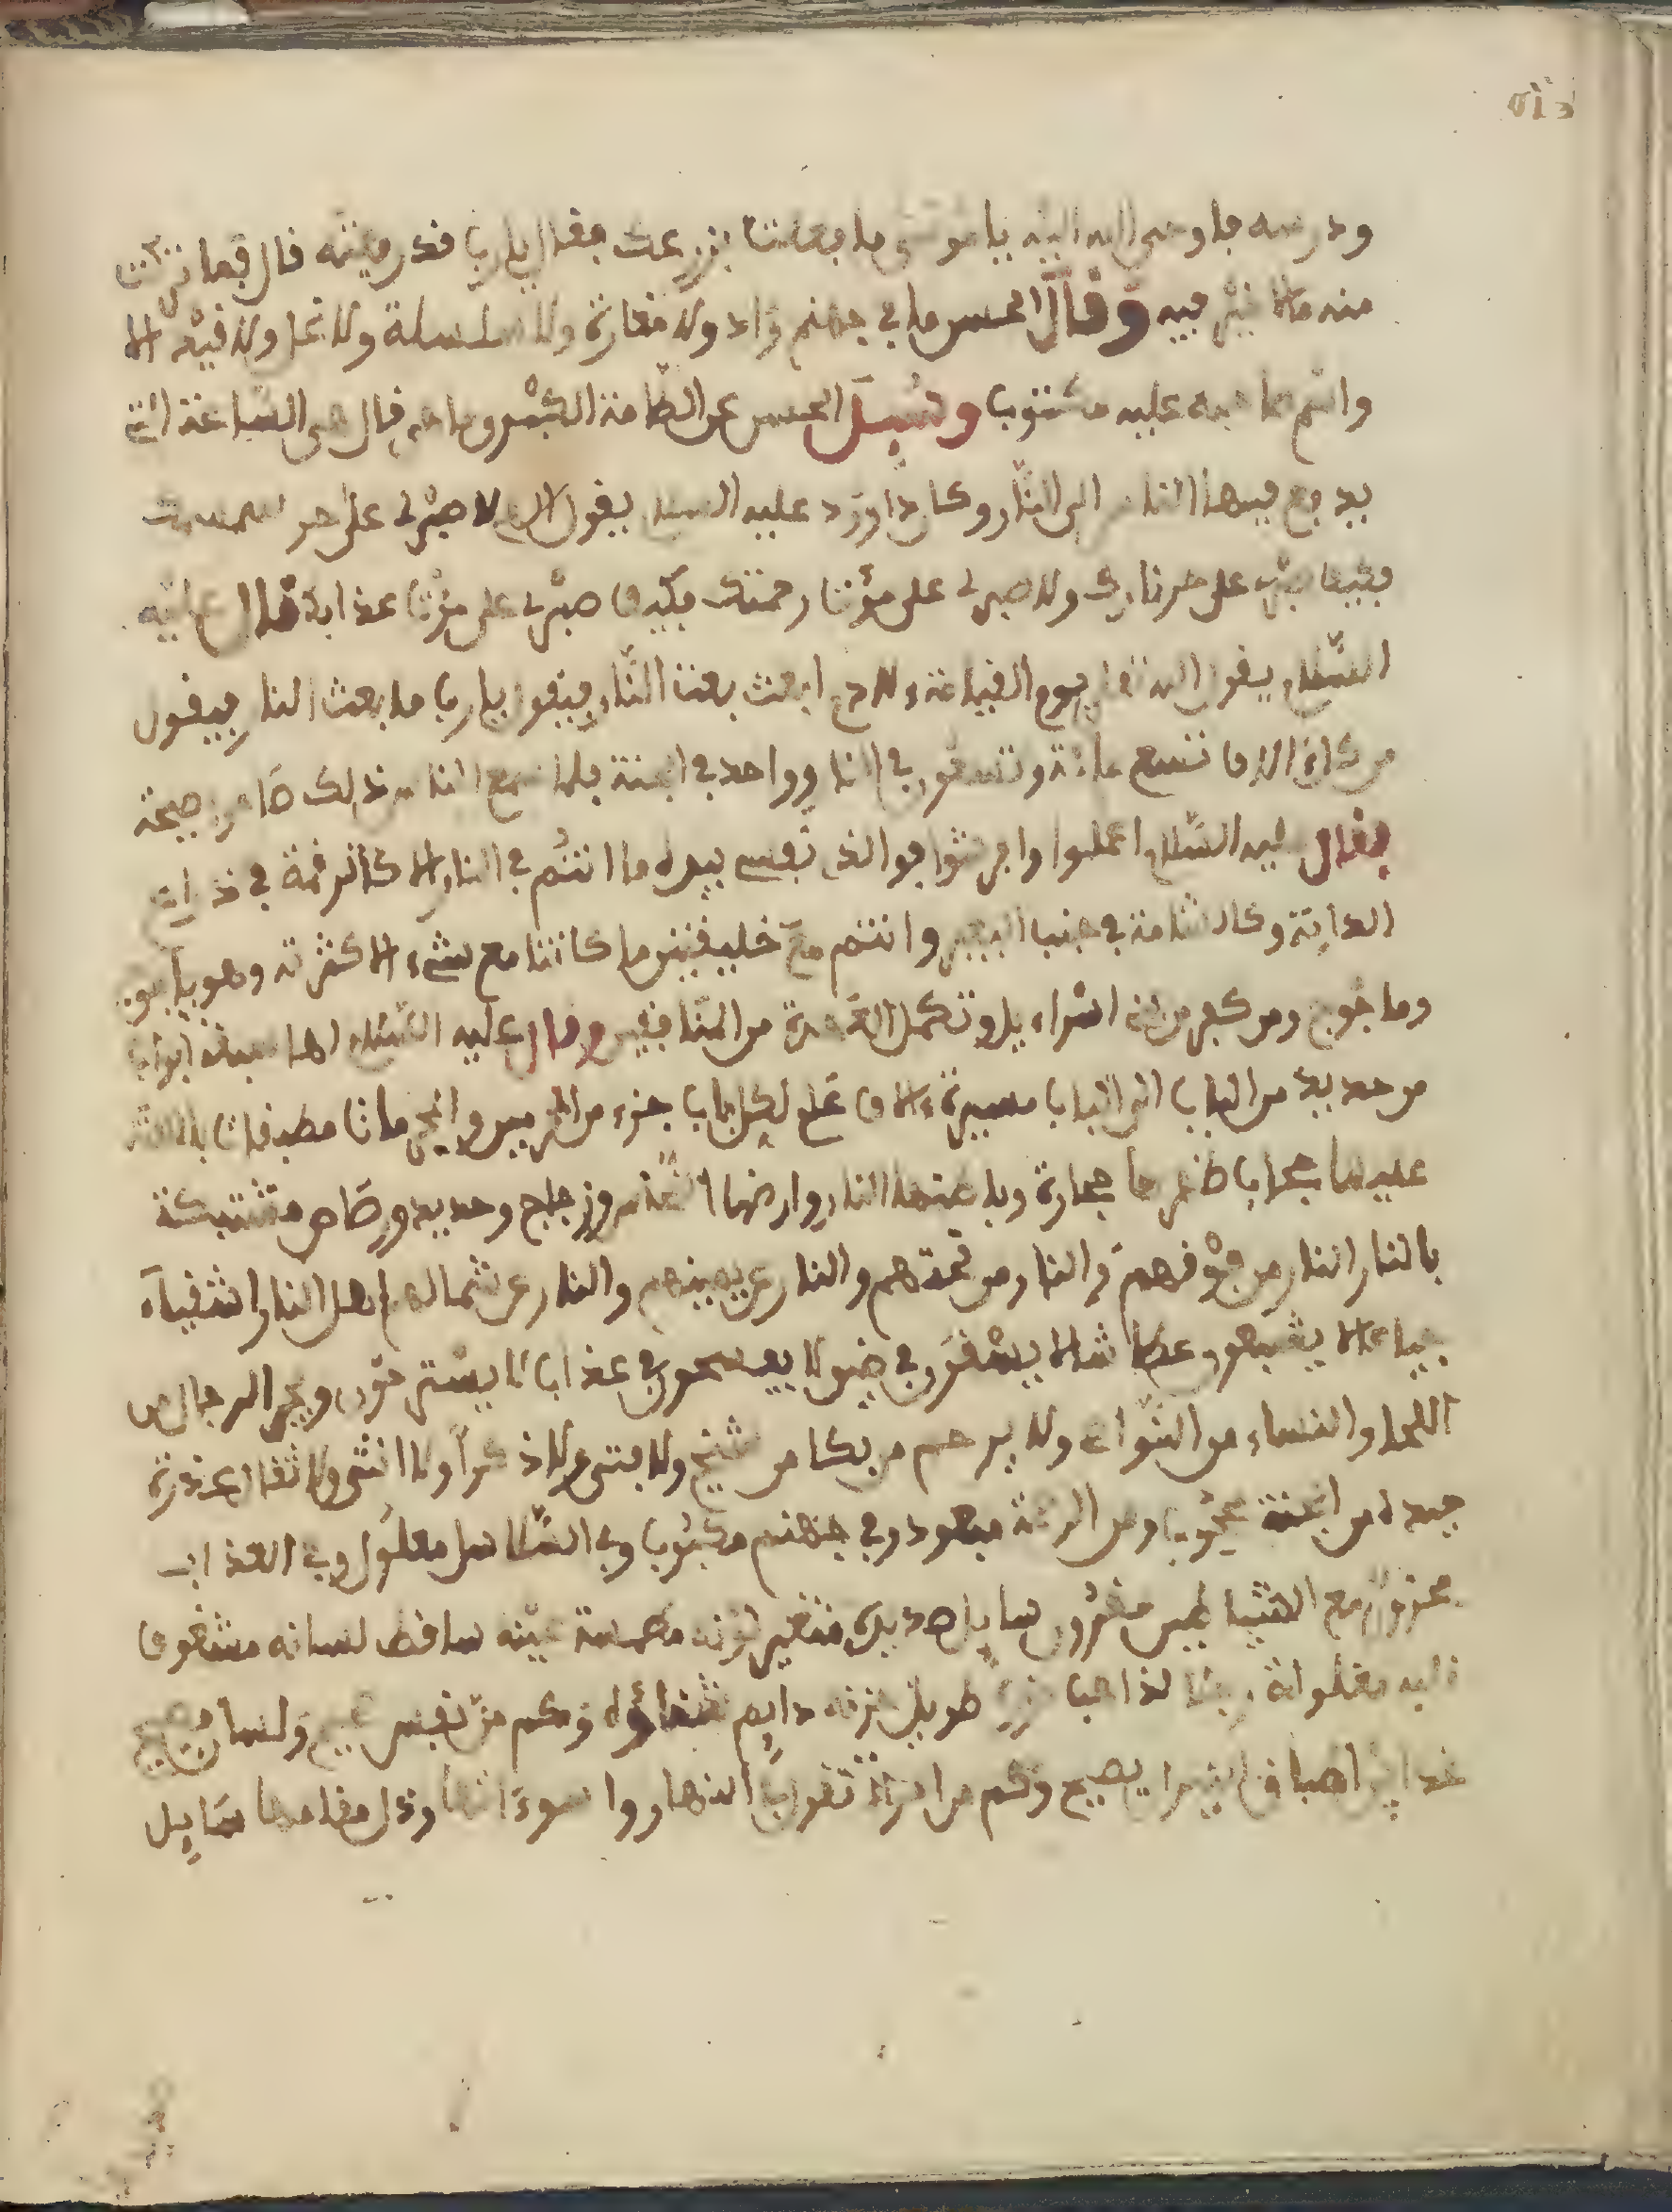 ودرسه فاوحى الله اليه يا موسى ما فعلت بزرعك فقال يا رب قد رميته قال فما تركت
منه ما لا خير فيه وقال الحسن ما في جهنم واد ولا مغارة ولا سلسلة ولا غل ولا قيد الا
واسم صاحبه عليه مكتوب وسيل الحسن عن الطامة الكبرى ما هي قال هي الساعة التي
يدفع فيها الناس الى النار وكان داوود عليه السلام يقول الاهي لا صبر لي على حر شمسك
فكيف صبري على حر نارك ولا صبر لي على صوت رحمتك فكيف صبري على صوت عذابك قال عليه
السلام يقول الله تعالى يوم القيامة ءلادم ابعث بعث النار فيقول يا رب ما بعث النار فيقول
من كل الف تسع ماية وتسعون في النار وواحد في الجنة فلما سمع الناس ذلك ضجوا ضجة
فقال عليه السلام اعملوا وابشروا فوالذي نفسي بيده ما انتم في النار الا كالرقمة في ذراع
الدابة وكالشامة في جنب البعير وانتم مع خليفتين ما كانتا مع شيء الا كثرته وهو ياجوج
وماجوج ومن كفر من بني اسراءيل وتكمل العدة من المنافقين وقال عليه السلام لها سبعة ابواب
من حديد من الباب الى الباب مسيرة ءالاف عام لكل باب جزء من المجرمين وابوابها مطبقات
عليها حجاب ظاهرها حجارة وباطنها النار وارضها النحاس وزجاج وحديد ورصاص مشتبكة
بالنار النار من فوقهم والنار من تحتهم والنار عن يمينهم والنار عن شمالهم اهل النار اشقياء
جياع لا يشبعون عطاش لا يسقون في ضيق لا يفسحون في عذاب لا يستريحون ويجر الرجال من
اللحا والنساء من النواصي ولا يرحم من بكا من شيخ ولا فتى ولا ذكرا ولا انثى ولا تقال عذرة
عبده من الجنة محجوب ومن الرحمة مبعود وفي جهنم مكبوب وفي السلاسل مغلول وفي العذاب
محزون مع الشياطين مقرون سايل صديده متغير لونه مطموسة عينه ساقط لسانه مشقوق
نابه مغلولة يداه ذاهب طويل حزنه دايم شقاؤه وكم من نفس ولسان فصيح
غدا بين اطباق النيران يصيح وكم من امراة تقول النهار واسوءتاه وذل مقامها سايل